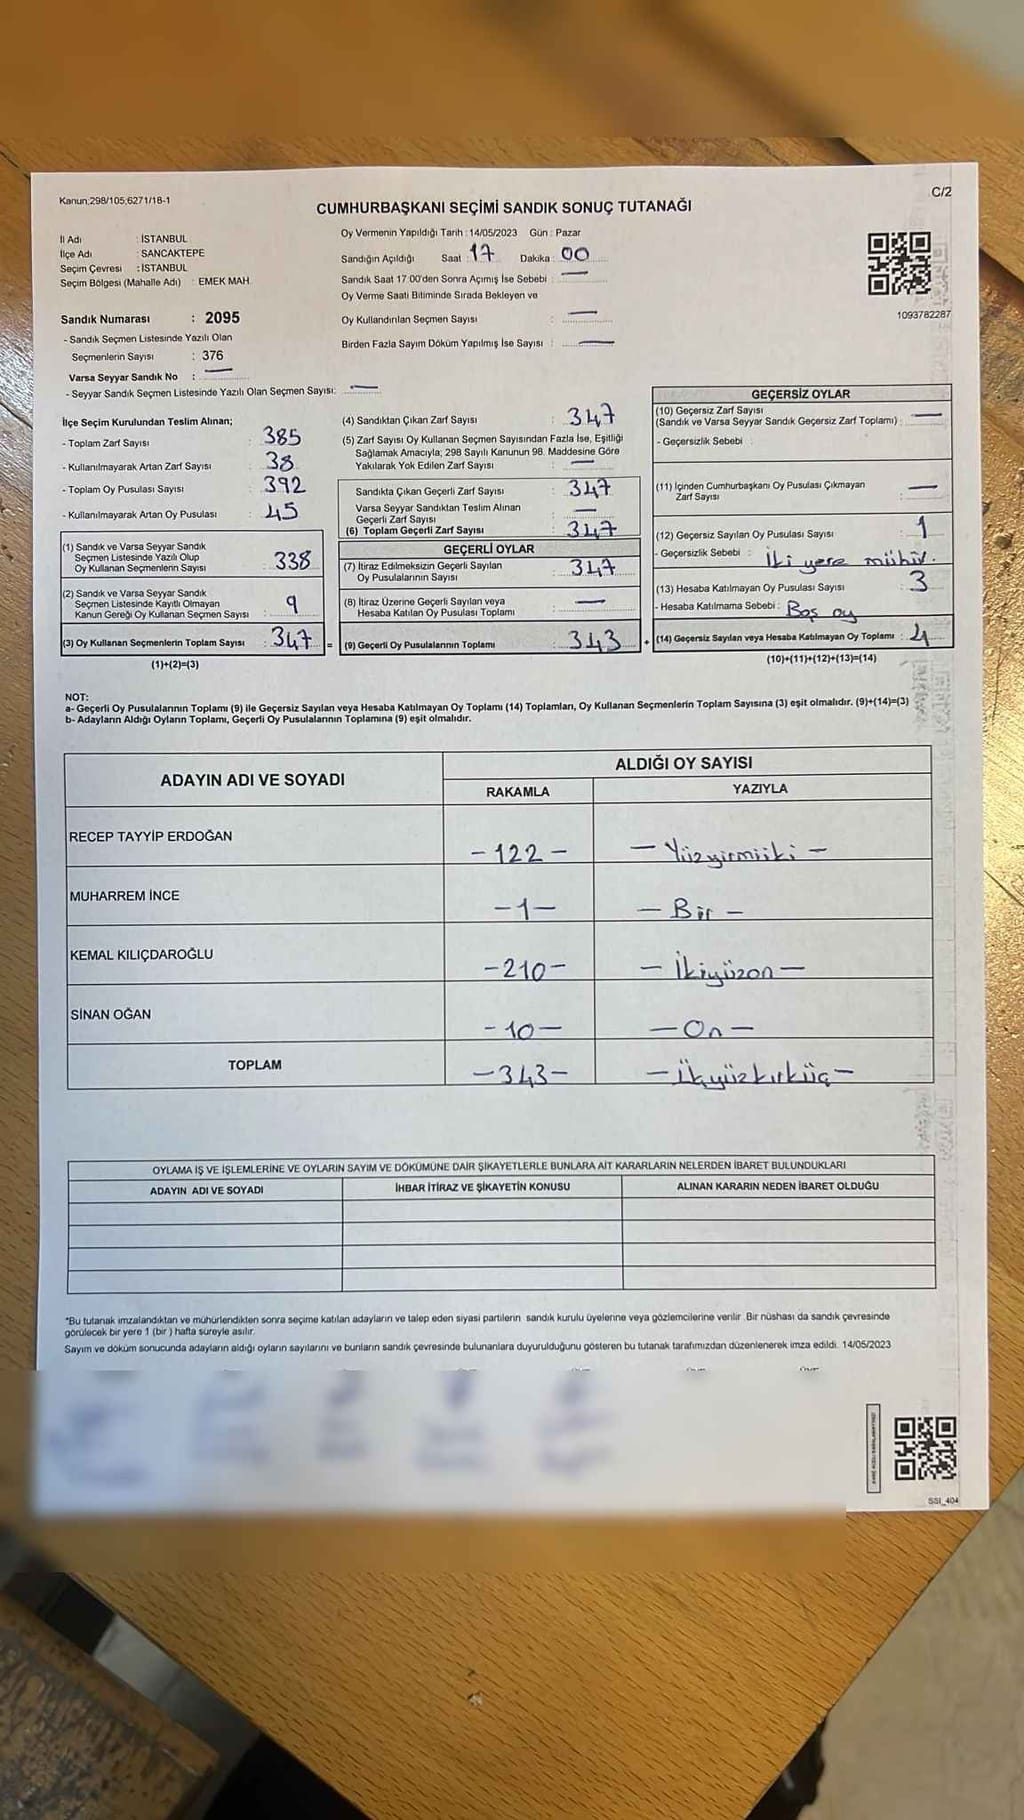 Kanun;298/105;6271/18-1
C/2
CUMHURBAŞKANI SEÇİMİ SANDIK SONUÇ TUTANAĞI
İl Adı : İSTANBUL
İlçe Adı : SANCAKTEPE
Seçim Çevresi : İSTANBUL
Seçim Bölgesi (Mahalle Adı) : EMEK MAH.
Sandık Numarası : 2095
- Sandık Seçmen Listesinde Yazılı Olan
Seçmenlerin Sayısı : 376
Varsa Seyyar Sandık No : —
- Seyyar Sandık Seçmen Listesinde Yazılı Olan Seçmen Sayısı: —
Oy Vermenin Yapıldığı Tarih : 14/05/2023 Gün : Pazar
Sandığın Açıldığı Saat : 17 Dakika : 00
Sandık Saat 17:00'den Sonra Açımış İse Sebebi : —
Oy Verme Saati Bitiminde Sırada Bekleyen ve
Oy Kullandırılan Seçmen Sayısı : —
Birden Fazla Sayım Döküm Yapılmış İse Sayısı : —
1093782287
İlçe Seçim Kurulundan Teslim Alınan;
- Toplam Zarf Sayısı : 385
- Kullanılmayarak Artan Zarf Sayısı : 38
- Toplam Oy Pusulası Sayısı : 392
- Kullanılmayarak Artan Oy Pusulası : 45
(1) Sandık ve Varsa Seyyar Sandık
Seçmen Listesinde Yazılı Olup
Oy Kullanan Seçmenlerin Sayısı : 338
(2) Sandık ve Varsa Seyyar Sandık
Seçmen Listesinde Kayıtlı Olmayan
Kanun Gereği Oy Kullanan Seçmen Sayısı : 9
(3) Oy Kullanan Seçmenlerin Toplam Sayısı : 347 =
(1)+(2)=(3)
(4) Sandıktan Çıkan Zarf Sayısı : 347
(5) Zarf Sayısı Oy Kullanan Seçmen Sayısından Fazla İse, Eşitliği
Sağlamak Amacıyla; 298 Sayılı Kanunun 98. Maddesine Göre
Yakılarak Yok Edilen Zarf Sayısı : —
Sandıkta Çıkan Geçerli Zarf Sayısı : 347
Varsa Seyyar Sandıktan Teslim Alınan
Geçerli Zarf Sayısı : —
(6) Toplam Geçerli Zarf Sayısı : 347
GEÇERLİ OYLAR
(7) İtiraz Edilmeksizin Geçerli Sayılan
Oy Pusulalarının Sayısı : 347
(8) İtiraz Üzerine Geçerli Sayılan veya
Hesaba Katılan Oy Pusulası Toplamı : —
(9) Geçerli Oy Pusulalarının Toplamı : 343 +
GEÇERSİZ OYLAR
(10) Geçersiz Zarf Sayısı
(Sandık ve Varsa Seyyar Sandık Geçersiz Zarf Toplamı) : —
- Geçersizlik Sebebi :
(11) İçinden Cumhurbaşkanı Oy Pusulası Çıkmayan
Zarf Sayısı : —
(12) Geçersiz Sayılan Oy Pusulası Sayısı : 1
- Geçersizlik Sebebi : İki yere mühür.
(13) Hesaba Katılmayan Oy Pusulası Sayısı : 3
- Hesaba Katılmama Sebebi : Boş oy
(14) Geçersiz Sayılan veya Hesaba Katılmayan Oy Toplamı : 4
(10)+(11)+(12)+(13)=(14)
NOT:
a- Geçerli Oy Pusulalarının Toplamı (9) ile Geçersiz Sayılan veya Hesaba Katılmayan Oy Toplamı (14) Toplamları, Oy Kullanan Seçmenlerin Toplam Sayısına (3) eşit olmalıdır. (9)+(14)=(3)
b- Adayların Aldığı Oyların Toplamı, Geçerli Oy Pusulalarının Toplamına (9) eşit olmalıdır.
ADAYIN ADI VE SOYADI
ALDIĞI OY SAYISI
RAKAMLA YAZIYLA
RECEP TAYYİP ERDOĞAN -122- - Yüzyirmiiki -
MUHARREM İNCE -1- - Bir -
KEMAL KILIÇDAROĞLU -210- - İkiyüzon -
SİNAN OĞAN -10- - On -
TOPLAM -343-
OYLAMA İŞ VE İŞLEMLERİNE VE OYLARIN SAYIM VE DÖKÜMÜNE DAİR ŞİKAYETLERLE BUNLARA AİT KARARLARIN NELERDEN İBARET BULUNDUKLARI
ADAYIN ADI VE SOYADI İHBAR İTİRAZ VE ŞİKAYETİN KONUSU ALINAN KARARIN NEDEN İBARET OLDUĞU
*Bu tutanak imzalandıktan ve mühürlendikten sonra seçime katılan adayların ve talep eden siyasi partilerin sandık kurulu üyelerine veya gözlemcilerine verilir. Bir nüshası da sandık çevresinde
görülecek bir yere 1 (bir) hafta süreyle asılır.
Sayım ve döküm sonucunda adayların aldığı oyların sayılarını ve bunların sandık çevresinde bulunanlara duyurulduğunu gösteren bu tutanak tarafımızdan düzenlenerek imza edildi. 14/05/2023
SSI_404